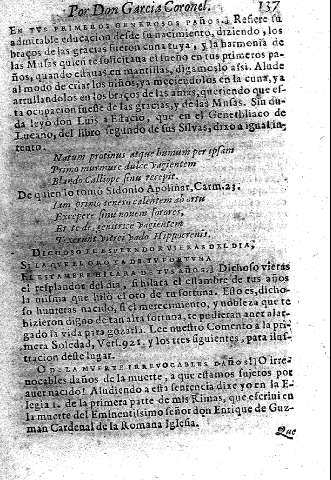 Por Don Garcia Coronel. 137
EN TVS PRIMEROS GENEROSOS PAÑOS.) Refiere su
admirable educacion desde su nacimiento, diziendo, los
braços de las gracias fueron cuna tuya, y la harmonia de
las Musas quien te solicitaua el sueño en tus primeros pa-
ños, quando estauas en mantillas, digamoslo assi. Alude
al modo de criar los niños, ya meciendolos en la cuna, ya
arrullandolos en los braços de las amas, queriendo que es-
ta ocupacion fuesse de las gracias, y de las Musas. Sin du-
da leyò don Luis a Estacio, que en el Genethliaco de
Lucano, del libro segundo de sus Silvas, dixo a igual in-
tento.
Natum protinus atque humum per ipsam
Primo murmure dulce vagientem
Blando Calliope sinu recepit.
De quien lo tomò Sidonio Apolinar, Carm. 23.
Iam primo tenero calentem ab ortu
Excepere sinu nouem sorores,
Et te de genitrice vagientem
Texerunt vitrei vado Hippocrenis.
DICHOSO EL ESPLENDOR VIERAS DEL DIA,
SI LA QUE EL ORO YA DE TV FORTVNA
EL ESTAMBRE HILARA DE TVS AÑOS.) Dichoso vieras
el resplandor del dia, si hilara el estambre de tus años
la misma que hilò el oro de tu fortuna. Esto es, dicho-
so huuieras nacido, si el merecimiento, y nobleza que te
hizieron digno de tan alta fortuna, te pudieran auer alar-
gado la vida para gozarla. Lee nuestro Comento a la pri-
mera Soledad, Vers. 021. y los tres siguientes, para ilus-
tracion deste lugar.
O DE LA MVERTE IRREVOCABLES DAÑOS!) O irre-
uocables daños de la muerte, a que estamos sujetos por
auer nacido! Aludiendo a esta sentencia dixe yo en la E-
legia 1. de la primera parte de mis Rimas, que escriui en
la muerte del Eminentissimo señor don Enrique de Guz-
man Cardenal de la Romana Iglesia.
Que